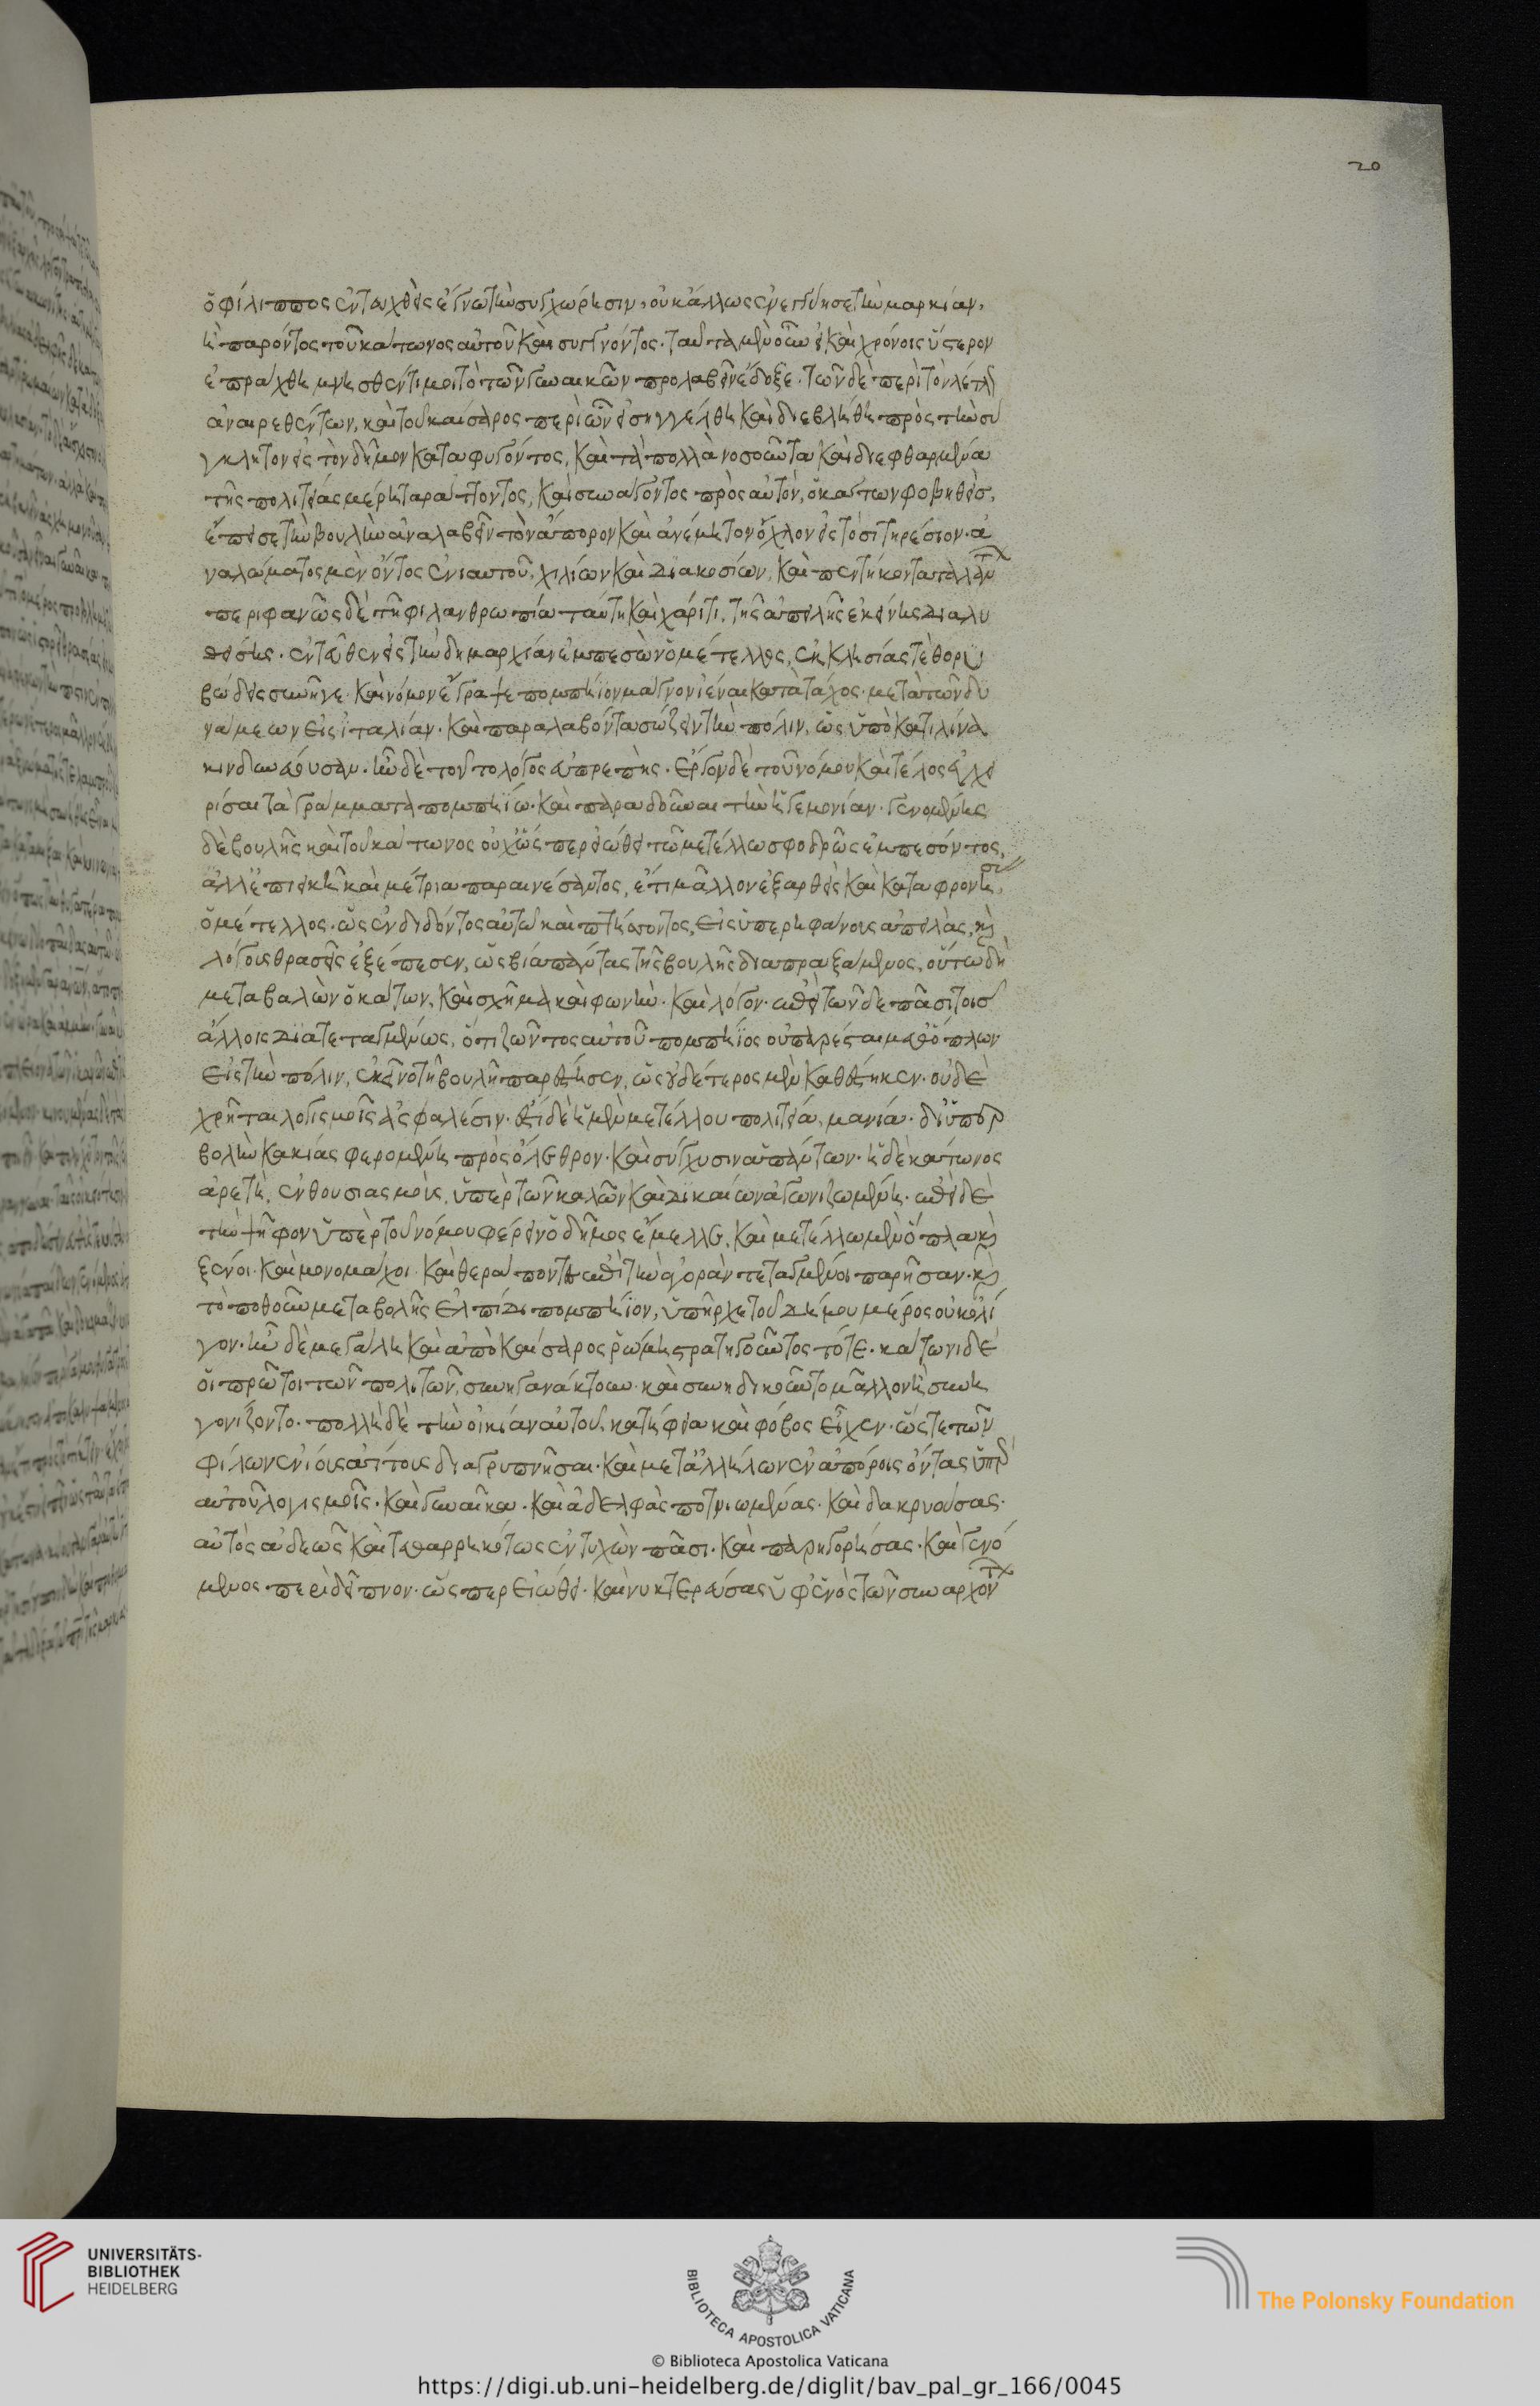 20
ὁ φίλιππος ἐνταχθεὶς ἔγνω τὴν συγχώρησιν, οὐκ ἄλλως ἐνεγγύησε τὴν μαρκίαν,
ἢ παρόντος τοῦ κάτωνος αὐτοῦ καὶ συγγνόντος. ταῦτα μὲν οὖν εἰ καὶ χρόνοις ὕστερον
ἐπράχθη μνησθέντι μοι τὸ τῶν γυναικῶν προλαβεῖν ἔδοξε. τῶν δὲ περὶ τὸν λέντλ
ἀναιρεθέντων, καὶ τοῦ καίσαρος περὶ ὧν εἰσηγγέλθη καὶ διεβλήθη πρὸς τὴν σύ
γκλητον εἰς τὸν δῆμον καταφυγόντος, καὶ τὰ πολλὰ νοσοῦντα καὶ διεφθαρμένα
τῆς πολιτείας μέρη ταράττοντος, καὶ συνάγοντος πρὸς αὑτόν, ὁ κάτων φοβηθείς,
ἔπεισε τὴν βουλὴν ἀναλαβεῖν τὸν ἄπορον καὶ ἀνέμητον ὄχλον εἰς τὸ σιτηρέσιον. ἀ
ναλώματος μὲν ὄντος ἐνιαυτοῦ, χιλίων καὶ διακοσίων, καὶ πεντήκοντα ταλάντ
περιφανῶς δὲ τῇ φιλανθρωπία ταύτη καὶ χάριτι, τῆς ἀπειλῆς ἐκείνης διαλυ
θείσης. ἐντεῦθεν εἰς τὴν δημαρχίαν ἐμπεσὼν ὁ μέτελλος, ἐκκλησίας τὲ θορυ
βώδεις συνῆγε. καὶ νόμον ἔγραψε πομπήϊον μάγνον ἰέναι κατὰ τάχος. μετὰ τῶν δυ
νάμεων εἰς ἰταλίαν. καὶ παραλαβόντα σώζειν τὴν πόλιν, ὡς ὑπὸ κατιλίνα
κινδυνεύουσαν. ἦν δὲ τοῦτο λόγος εὐπρεπής. ἔργον δὲ τοῦ νόμου καὶ τέλος ἐγχει
ρίσαι τὰ πράγματα πομπηίω. καὶ παραδοῦναι τὴν ἡγεμονίαν. γενομένης
δὲ βουλῆς καὶ τοῦ κάτωνος οὐχ ὥσπερ εἰώθει τῶ μετέλλω σφοδρῶς ἐμπεσόντος,
ἀλλ' ἐπιεικῆ καὶ μέτρια παραινέσαντος, ἔτι μᾶλλον ἐξαρθεὶς καὶ καταφρονήσ
ὁ μέτελλος. ὡς ἐνδιδόντος αὐτοῦ καὶ πτήσσοντος, εἰς ὑπερηφάνους ἀπειλὰς, καὶ
λόγους θρασεῖς ἐξέπεσεν, ὡς βία πάντα τῆς βουλῆς διαπραξάμενος, οὕτω δὴ
μεταβαλὼν ὁ κάτων, καὶ σχῆμα καὶ φωνὴν. καὶ λόγον. ἐπειπὼν δὲ πᾶσι τοῖς
ἄλλοις διατεταμένως, ὅτι ζῶντος αὐτοῦ πομπήϊος οὐ παρέσται μεθ' ὅπλων
εἰς τὴν πόλιν, ἐκεῖνο τῇ βουλῇ παρέστησεν, ὡς οὐδέτερος μὲν καθέστηκεν. οὐδὲ
χρῆται λογισμοῖς ἀσφαλέσιν. ἔστι δὲ ἡ μὲν μετέλλου πολιτεία, μανία. δι' ὑπερ
βολὴν κακίας φερομένη πρὸς ὄλεθρον. καὶ σύγχυσιν ἁπάντων. ἡ δὲ κάτωνος
ἀρετὴ, ἐνθουσιασμὸς, ὑπὲρ τῶν καλῶν καὶ δικαίων ἀγωνιζομένη. ἐπεὶ δὲ
τὴν ψῆφον ὑπὲρ τοῦ νόμου φέρειν ὁ δῆμος ἔμελλε, καὶ μετέλλω μὲν ὅπλα καὶ
ξένοι. καὶ μονομάχοι. καὶ θεράποντες ἐπὶ τὴν ἀγορὰν τεταγμένοι παρῆσαν. καὶ
τὸ ποθοῦν μεταβολῆς ἐλπίδι πομπήϊον, ὑπῆρχε τοῦ δήμου μέρος οὐκ ὀλί
γον. ἦν δὲ μεγάλη καὶ ἀπὸ καίσαρος ῥώμη στρατηγοῦντος τότε. κάτωνι δὲ
οἱ πρῶτοι τῶν πολιτῶν, συνηγανάκτουν. καὶ συνηδικοῦντο μᾶλλον ἢ συνη
γωνίζοντο. πολλὴ δὲ τὴν οἰκίαν αὐτοῦ, κατήφεια καὶ φόβος εἶχεν. ὥστε τῶν
φίλων ἐνίους ἀσίτους διαγρυπνῆσαι. καὶ μετ' ἀλλήλων ἐν ἀπόροις ὄντας ὑπὲρ
αὐτοῦ λογισμοῖς. καὶ γυναῖκα. καὶ ἀδελφὰς ποτνιωμένας. καὶ δακρυούσας.
αὐτὸς ἀδεῶς καὶ τεθαρρηκότως ἐντυχὼν πᾶσι. καὶ παρηγορήσας. καὶ γενό
μενος περὶ δεῖπνον. ὥσπερ εἰώθει. καὶ νυκτερεύσας ὑφ' ἑνὸς τῶν συναρχόντ
UNIVERSITÄTS-
BIBLIOTHEK
HEIDELBERG
BIBLIOTECA APOSTOLICA VATICANA
The Polonsky Foundation
© Biblioteca Apostolica Vaticana
https://digi.ub.uni-heidelberg.de/diglit/bav_pal_gr_166/0045